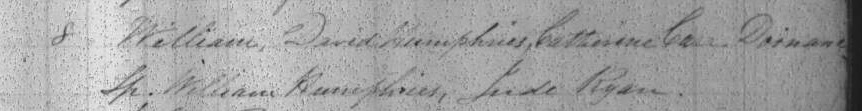 8 William, David Humphries, Catherine Carr. Doonane
Sp. William Humphries, Jude Ryan.